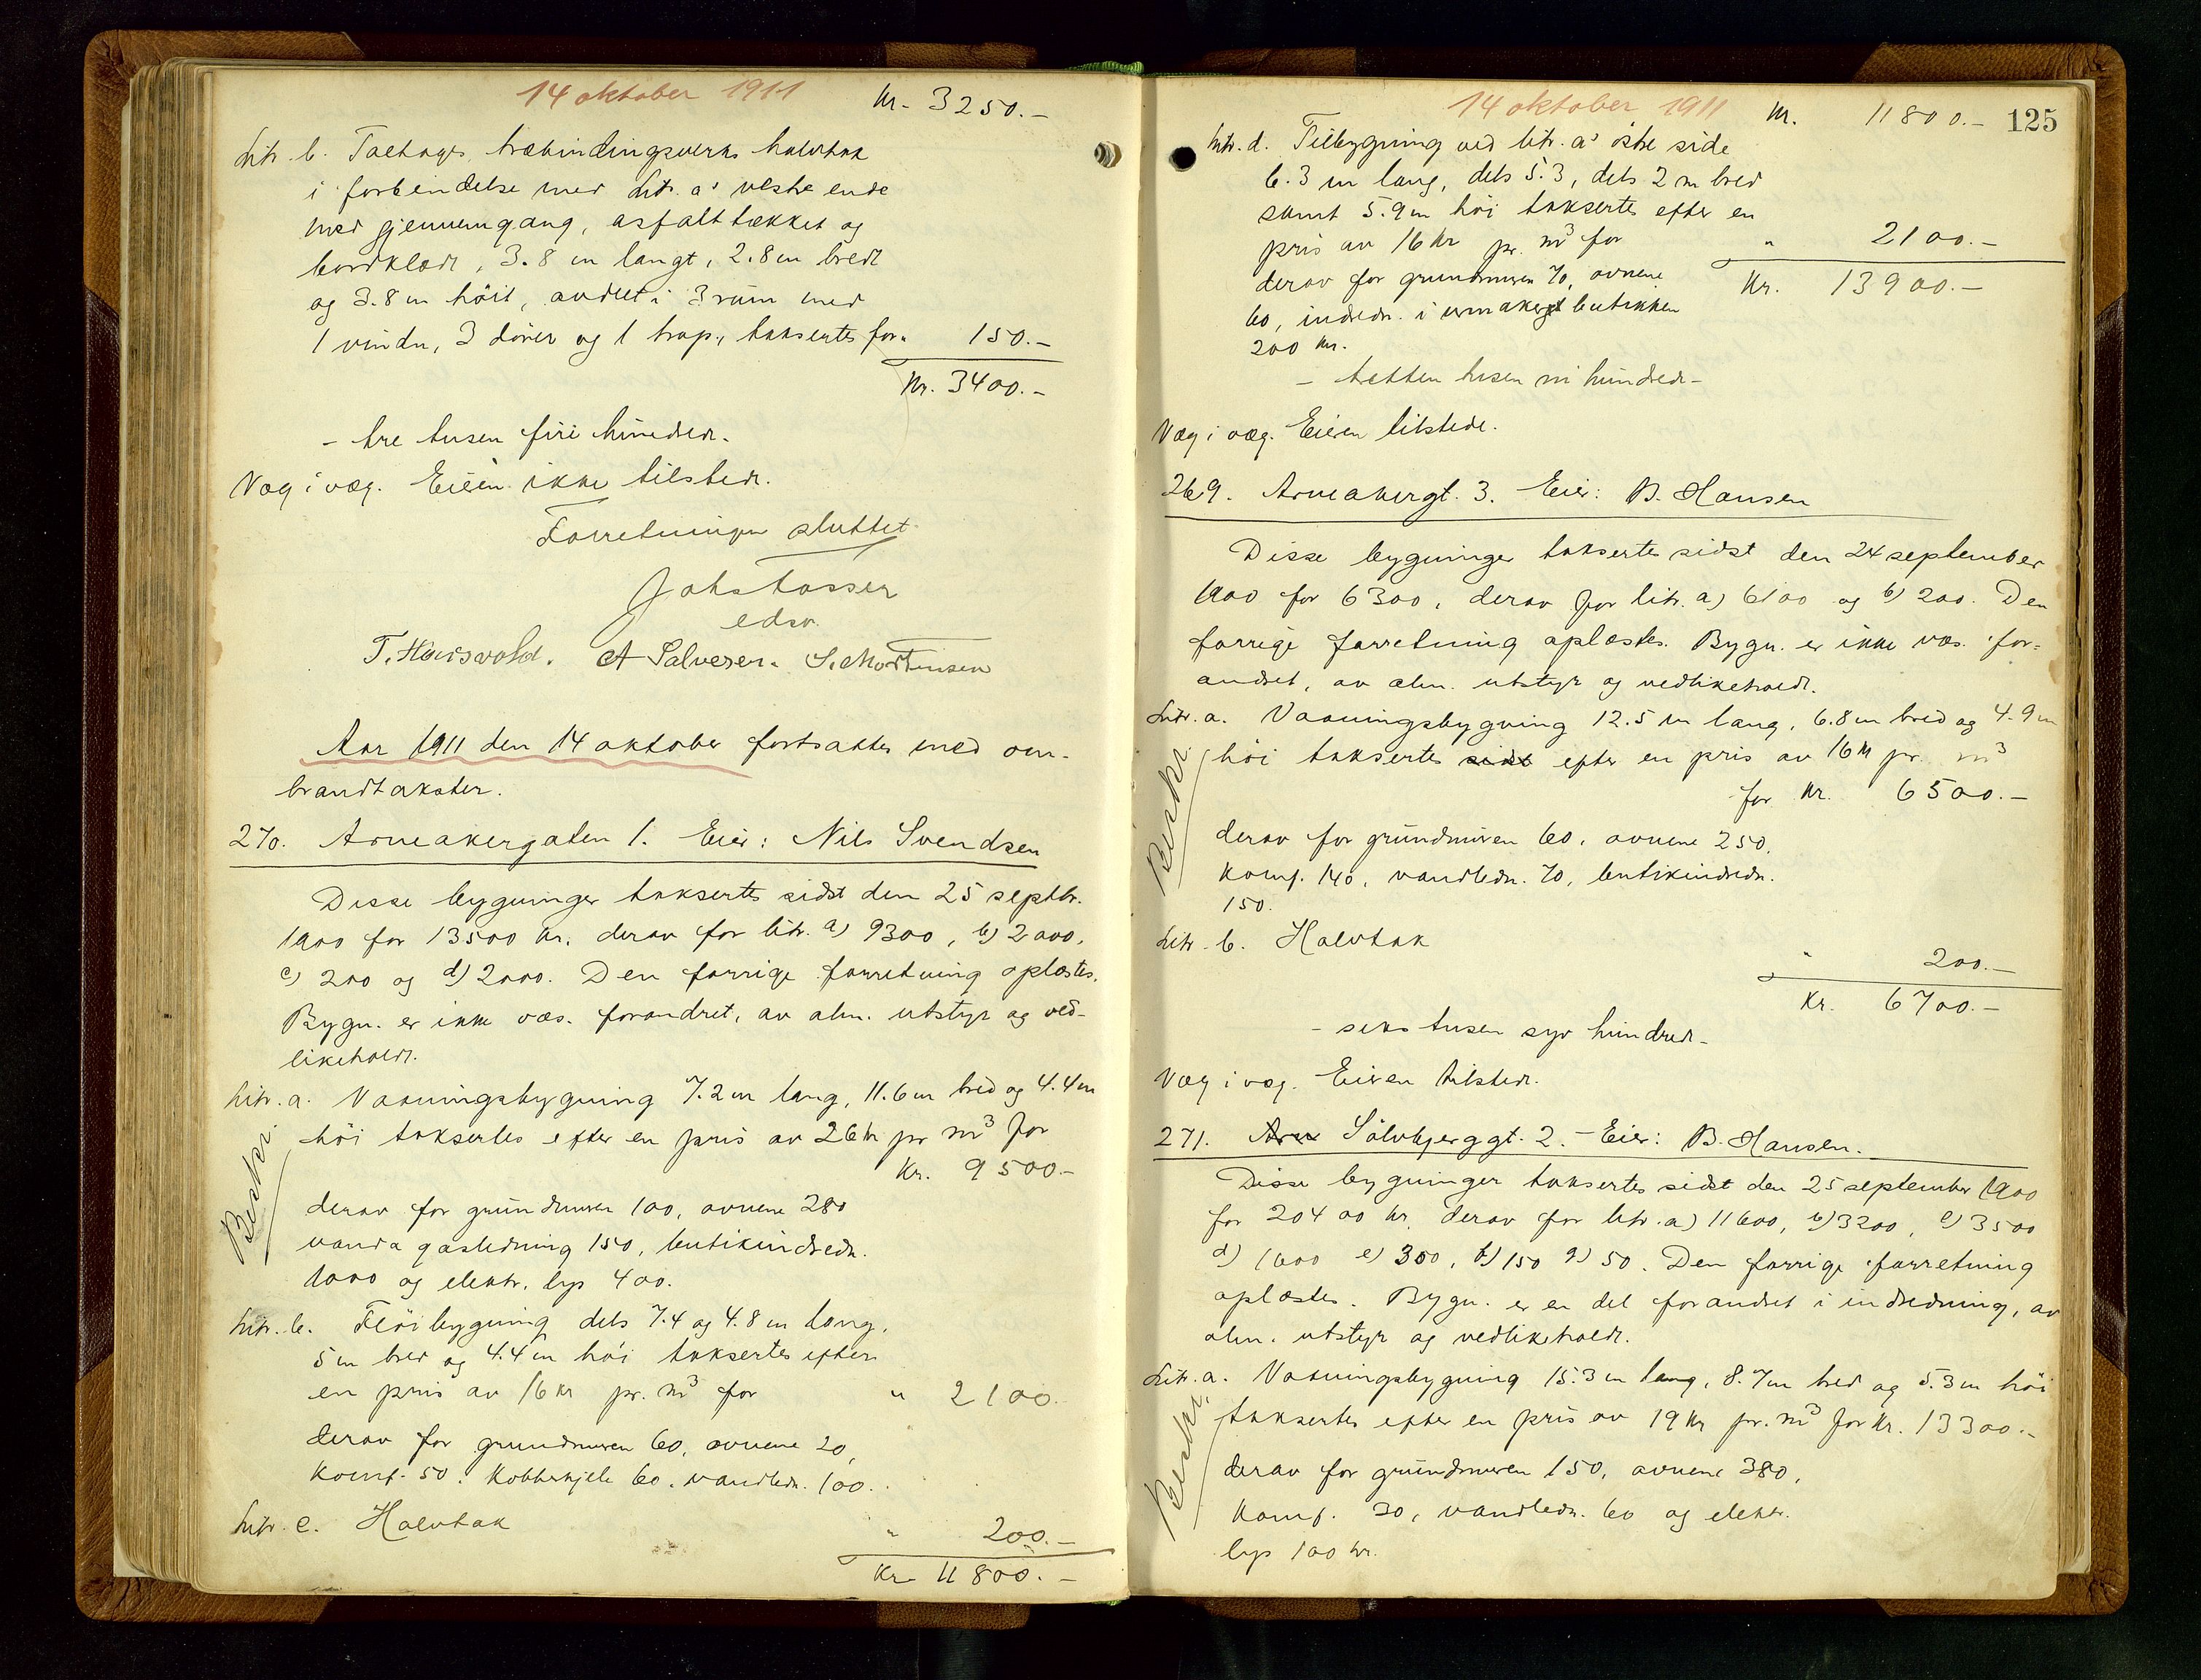 14 oktober 1911
Kr. 3250.-
Litr. b. Toetages, træbindingsverks halvtak
i forbindelse med Litr. a's vestre ende
med gjennemgang, asfalttækket og
bordklædt, 3.8 m langt, 2.8 m bredt
og 3.8 m höit, avdelt i 3 rum med
1 vindu, 3 dörer og 1 trap., taksertes for " 150.-
Kr. 3400.-
- tre tusen fire hundrede.
Væg i væg. Eieren ikke tilstede.
Forretningen sluttet
edsv.
T. Hoisvold. A Salvesen. S. Mortensen
Aar 1911 den 14 oktober fortsattes med om-
brandtakster.
270. Arneakergaten 1. Eier: Nils Svendsen
Disse bygninger taksertes sidst den 25 septbr.
1900 for 13500 kr. derav for litr. a) 9300, b) 2000,
c) 200 og d) 2000. Den forrige forretning oplæstes.
Bygn. er ikke væs. forandret, av alm. utstyr og ved-
likeholdt.
Litr. a. Vaaningsbygning 7.2 m lang, 11.6 m bred og 4.4 m
höi taksertes efter en pris av 26 kr pr m³ for
Kr. 9500.-
derav for grundmuren 100, ovnene 280
vand a gasledning 150, butikindredn.
1000 og elektr. lys 400.
Litr. b. Flöibygning dels 7.4 og 4.8 m lang,
5 m bred og 4.4 m höi taksertes efter
en pris av 16 kr pr. m³ for " 2100.
derav for grundmuren 60, ovnene 20,
Komf. 50. Kobberkjele 60. vandledn. 100.
Litr. c. Halvtak " 200.-
Kr 11800.-
14 oktober 1911
Kr. 11800.- 125
Litr. d. Tilbygning ved litr. a's östre side
6.3 m lang, dels 5.3, dels 2 m bred
samt 5.9 m höi taksertes efter en
pris av 16 kr pr. m³ for " 2100.-
derav for grundmuren 70, ovnene Kr. 13900.-
60, indredn. i urmaker butikken
200 kr.
- tretten tusen ni hundrede -
Væg i væg. Eieren tilstede.
269. Arneakergt. 3. Eier: B. Hansen
Disse bygninger taksertes sidst den 24 september
1900 for 6300, derav for litr. a) 6100 og b) 200. Den
forrige forretning oplæstes. Bygn. er ikke væs. for-
andret, av alm. utstyr og vedlikeholdt.
Litr. a. Vaaningsbygning 12.5 m lang, 6.8 m bred og 4.9 m
höi taksertes sidst efter en pris av 16 kr pr. m³
for Kr. 6500.-
derav for grundmuren 60, ovnene 250,
Komf. 140, vandledn. 70, butikindredn.
150.
Litr. b. Halvtak " 200.-
Kr. 6700.-
- seks tusen syv hundrede -
Væg i væg. Eieren tilstede.
271. Arn Sölvbjerggt. 2. - Eier: B. Hansen.
Disse bygninger taksertes sidst den 25 september 1900
for 20400 kr. derav for litr. a) 11600, b) 3200, c) 3500
d) 1600 e) 300, f) 150 g) 50. Den forrige forretning
oplæstes. Bygn. er en del forandret i indredning, av
alm. utstyr og vedlikeholdt.
Litr. a. Vaaningsbygning 15.3 m lang, 8.7 m bred og 5.3 m höi
taksertes efter en pris av 19 kr pr. m³ for Kr. 13300.-
derav for grundmuren 150, ovnene 380,
Komf. 30, vandledn. 60 og elektr.
lys 100 kr.